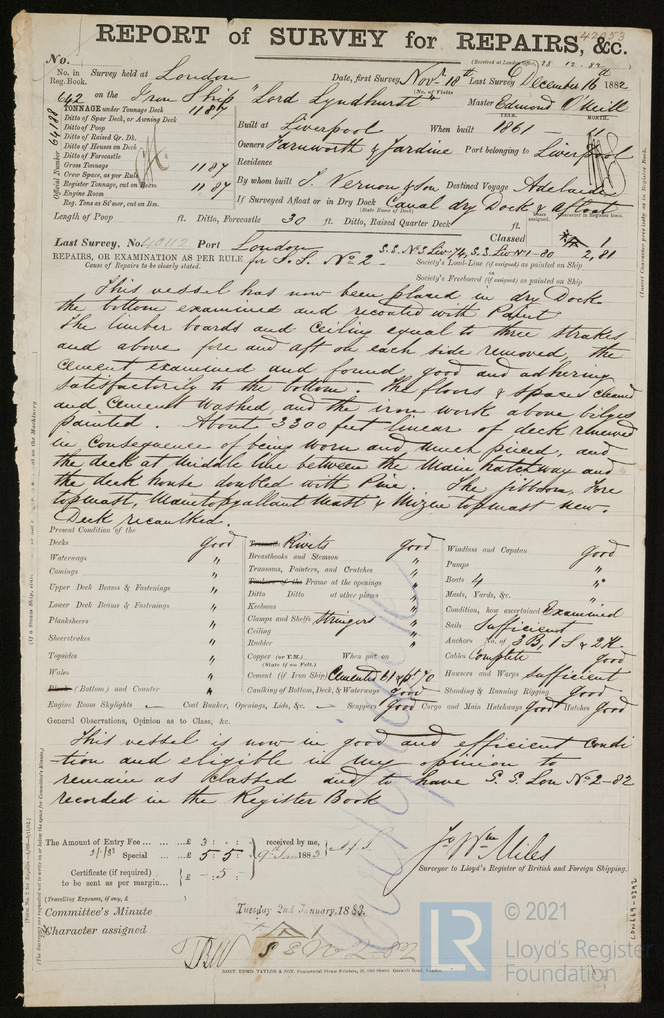 42053
REPORT of SURVEY for REPAIRS, &c.
(Received at London Office, 28-12-82)
No.
No. in Reg. Book. Survey held at London Date, first Survey Novr 18th Last Survey December 16th 1882
(No. of Visits)
642 on the Iron Ship "Lord Lyndhurst" Master Edmond O'Neill
Official Number 64188
TONNAGE under Tonnage Deck 1187
Ditto of Spar Deck, or Awning Deck
Ditto of Poop
Ditto of Raised Qr. Dk.
Ditto of Houses on Deck
Ditto of Forecastle
Gross Tonnage 1187
Crew Space, as per Rule
Register Tonnage, cut on Beam 1187
Engine Room
Reg. Tons as Stmer, cut on Bm.
YEAR. MONTH.
Built at Liverpool When built 1861
Owners Farnworth & Jardine Port belonging to Liverpool
Residence
By whom built T. Vernon & Son Destined Voyage Adelaide
If Surveyed Afloat or in Dry Dock Canal dry Dock & afloat
(State Name of Dock)
Length of Poop ft. Ditto, Forecastle 30 ft. Ditto, Raised Quarter Deck ft.
Classed 1
2,81
Last Survey, No. 40112 Port London S.S. No 3 Liv-74, S.S. Liv No 1-80
REPAIRS, OR EXAMINATION AS PER RULE for S.S. No 2
Cause of Repairs to be clearly stated.
Society's Load-Line (if assigned) as painted on Ship
or
Society's Freeboard (if assigned) as painted on Ship
This vessel has now been placed in dry Dock
the bottom examined and recoated with Paint
The limber boards and Ceiling equal to three strakes
and above fore and aft on each side removed, the
cement examined and found good and adhering
satisfactorily to the bottom. The floors & spaces cleaned
and cement washed, and the iron work above bilges
painted. About 3300 feet linear of deck renewed
in consequence of being worn and much pieced, and
the deck at middle line between the Main hatchway and
the deck house doubled with Pine. The jibboom, Fore
topmast, Maintopgallant Mast & Mizen topmast new.
Deck recaulked.
Present Condition of the
Decks Good
Waterways "
Comings "
Upper Deck Beams & Fastenings "
Lower Deck Beams & Fastenings "
Planksheers "
Sheerstrakes "
Topsides "
Wales "
(Bottom) and Counter "
Engine Room Skylights – Coal Bunker, Openings, Lids, &c. – Scuppers Good Cargo and Main Hatchways Good Hatches Good
Treenails Rivets Good
Breasthooks and Stemson "
Transoms, Pointers, and Crutches "
Timbers of the Frame at the openings "
Ditto Ditto at other places "
Keelsons "
Clamps and Shelfs Stringers "
Ceiling "
Rudder "
Copper (or Y.M.) When put on
(State if on Felt.)
Cement (if Iron Ship) Cemented 61 & pt 70
Caulking of Bottom, Deck, & Waterways Good
Windlass and Capstan Good
Pumps "
Boats 4 "
Masts, Yards, &c. "
Condition, how ascertained Examined
Sails Sufficient
Anchors No. of 3 B, 1 S & 2 K
Cables Complete Good
Hawsers and Warps Sufficient
Standing & Running Rigging Good
General Observations, Opinion as to Class, &c.
This vessel is now in good and efficient condi
-tion and eligible in my opinion to
remain as classed and to have S.S. Lon No 2-82
recorded in the Register Book
The Amount of Entry Fee ... £ 3 : :
Special ... £ 5 : 5 :
Certificate (if required) to be sent as per margin... £ - . 5 :
received by me,
9th Jan 1883
(Travelling Expenses, if any, £ )
Jo Wm Miles
Surveyor to Lloyd's Register of British and Foreign Shipping.
Committee's Minute Tuesday 2nd January, 1883.
Character assigned
LON669-0392
KENT, EMMIS TAYLOR & SON, Commercial Steam Printers,
LR
© 2021
Lloyd's Register
Foundation